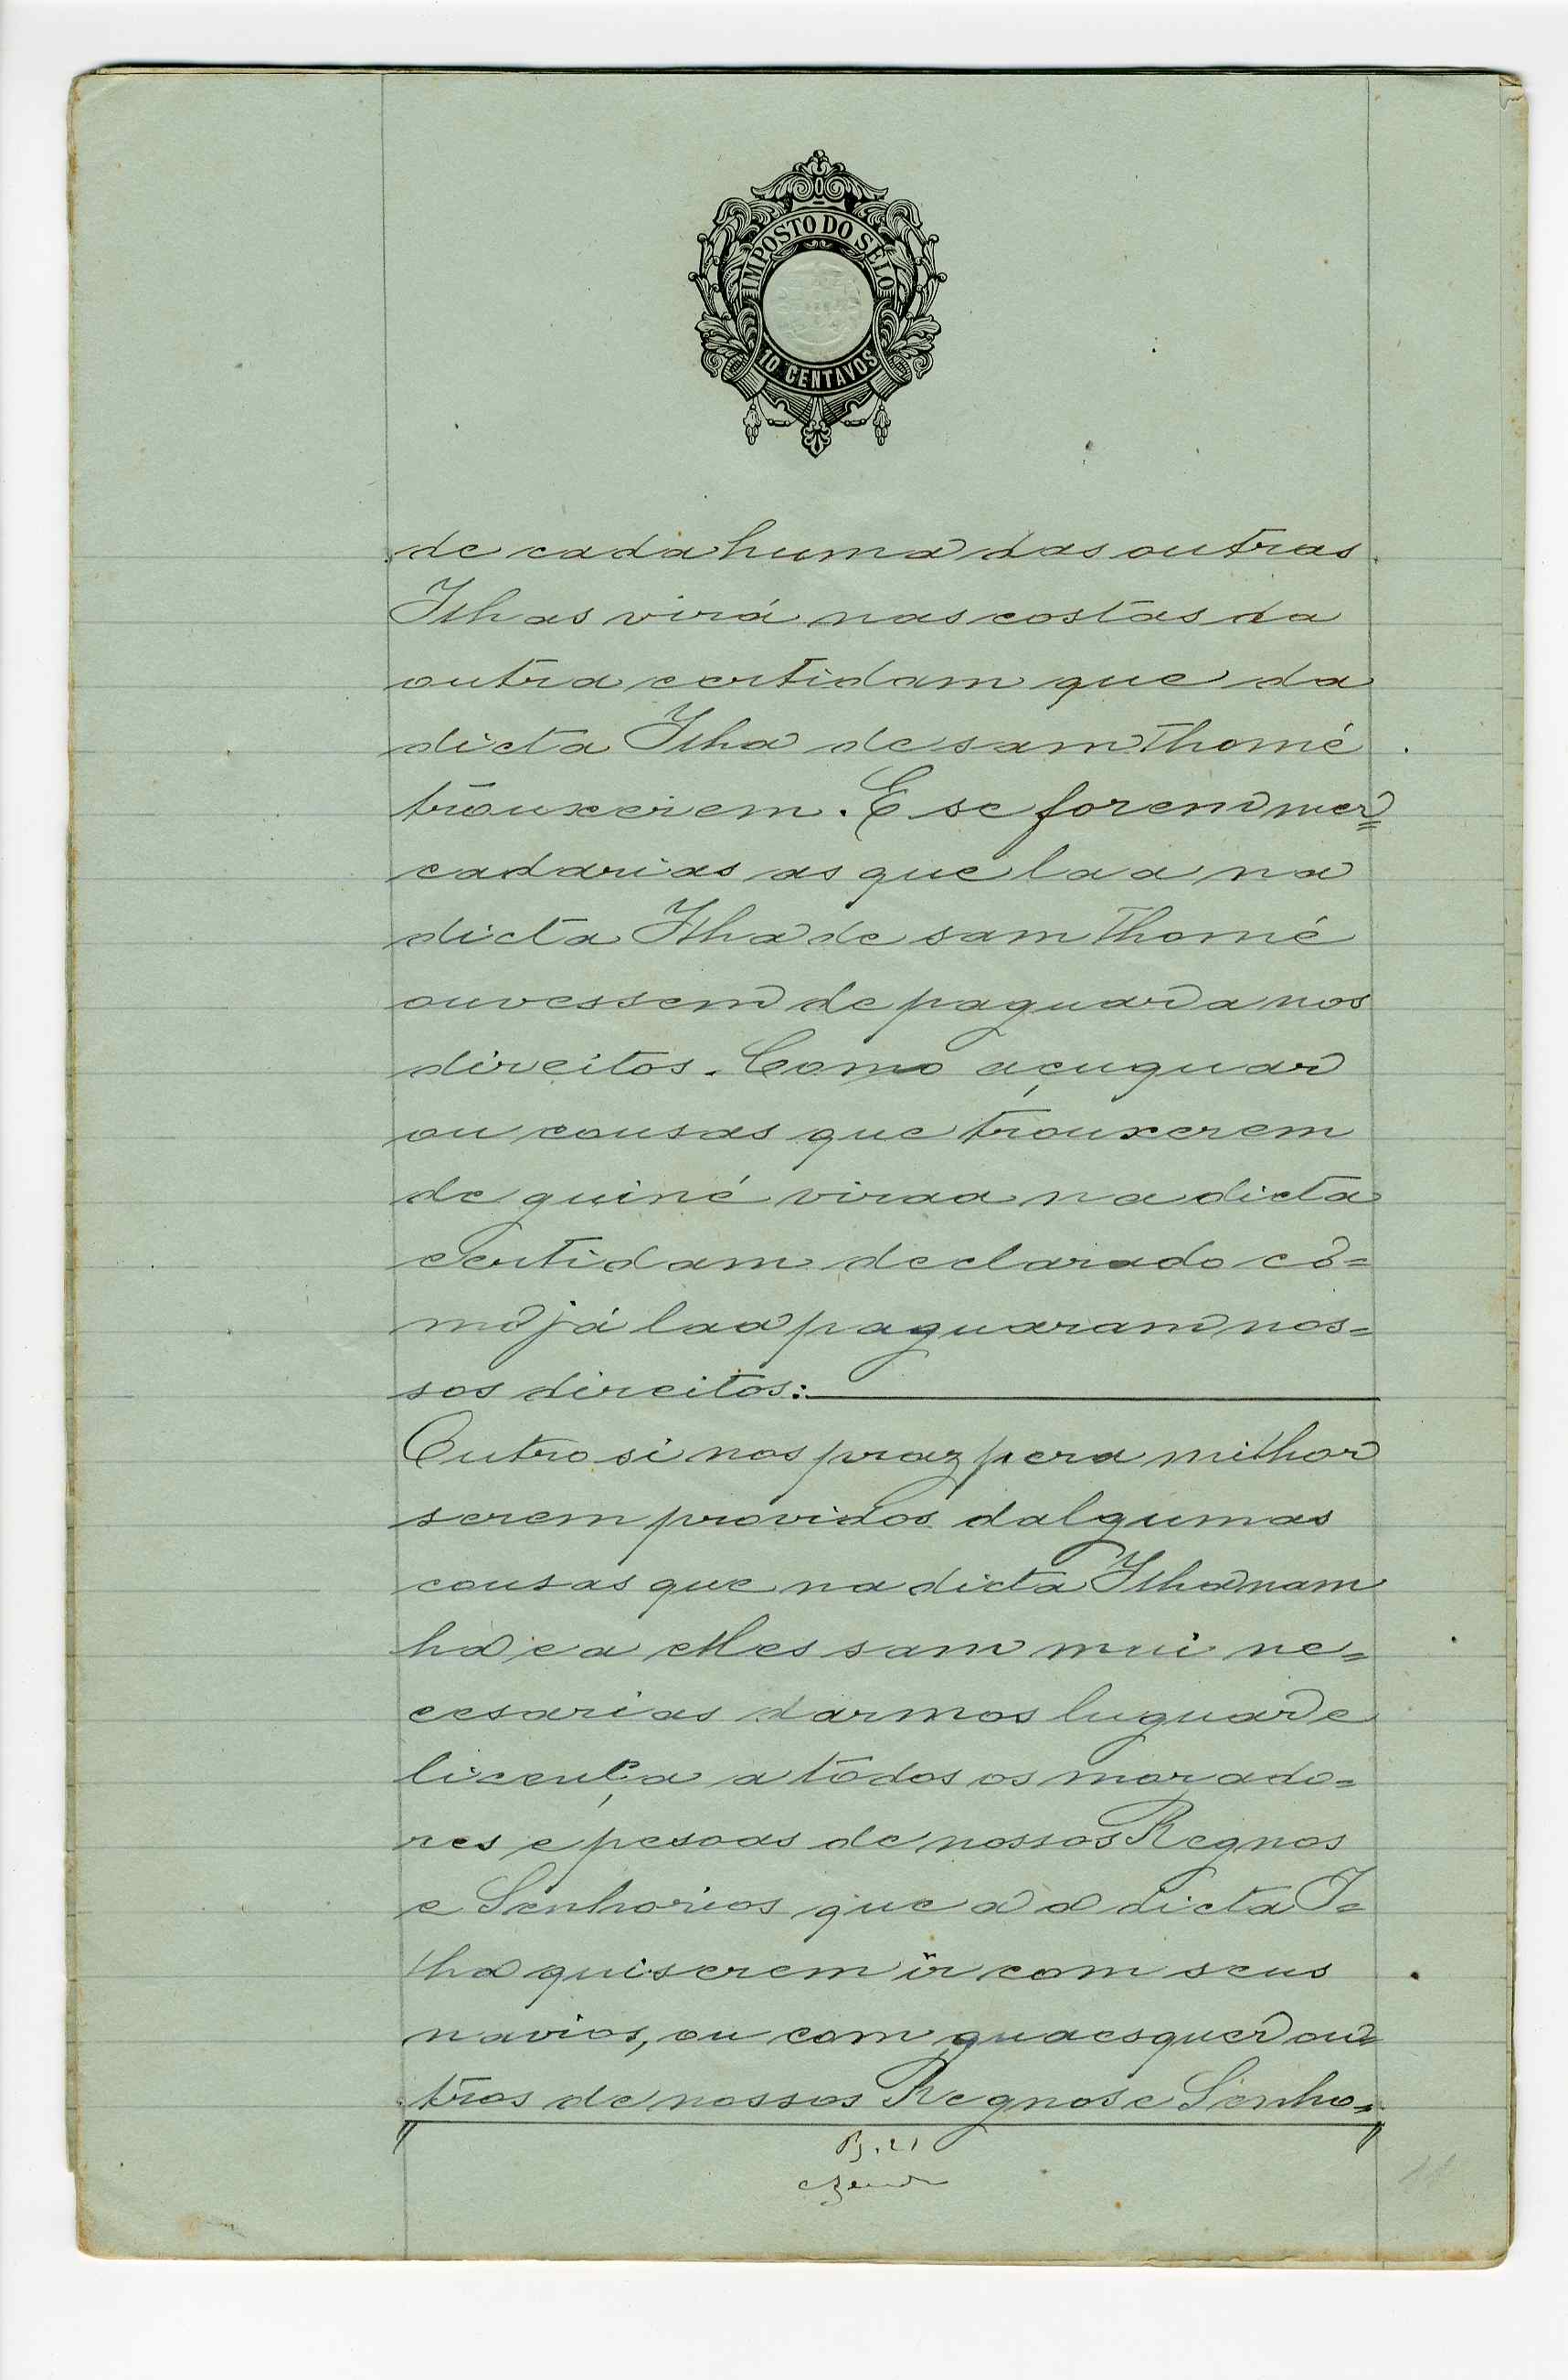 IMPOSTO DO SELO
10 CENTAVOS
de cada huma das outras
Ilhas virá nas costas da
outra certidam que da
dicta Ilha de sam Thomé
trouxerem. E se forem mer=
cadarias as que laa na
dicta Ilha de sam Thomé
ouvessem de paguar a nos
direitos. Como açuquar
ou cousas que trouxerem
de guiné viraa na dicta
certidam declarado co=
mo já laa paguaram nos=
sos direitos:
Outro si nos praz pera milhor
serem providos dalgumas
cousas que na dicta Ilha nam
ha e a elles sam mui ne=
cesarias darmos luguar e
licença a todos os morado=
res e pesoas de nossos Regnos
e Senhorios que a a dicta I=
lha quiserem ir com seus
navios, ou com quaesquer ou=
tros de nossos Regnos e Senho=